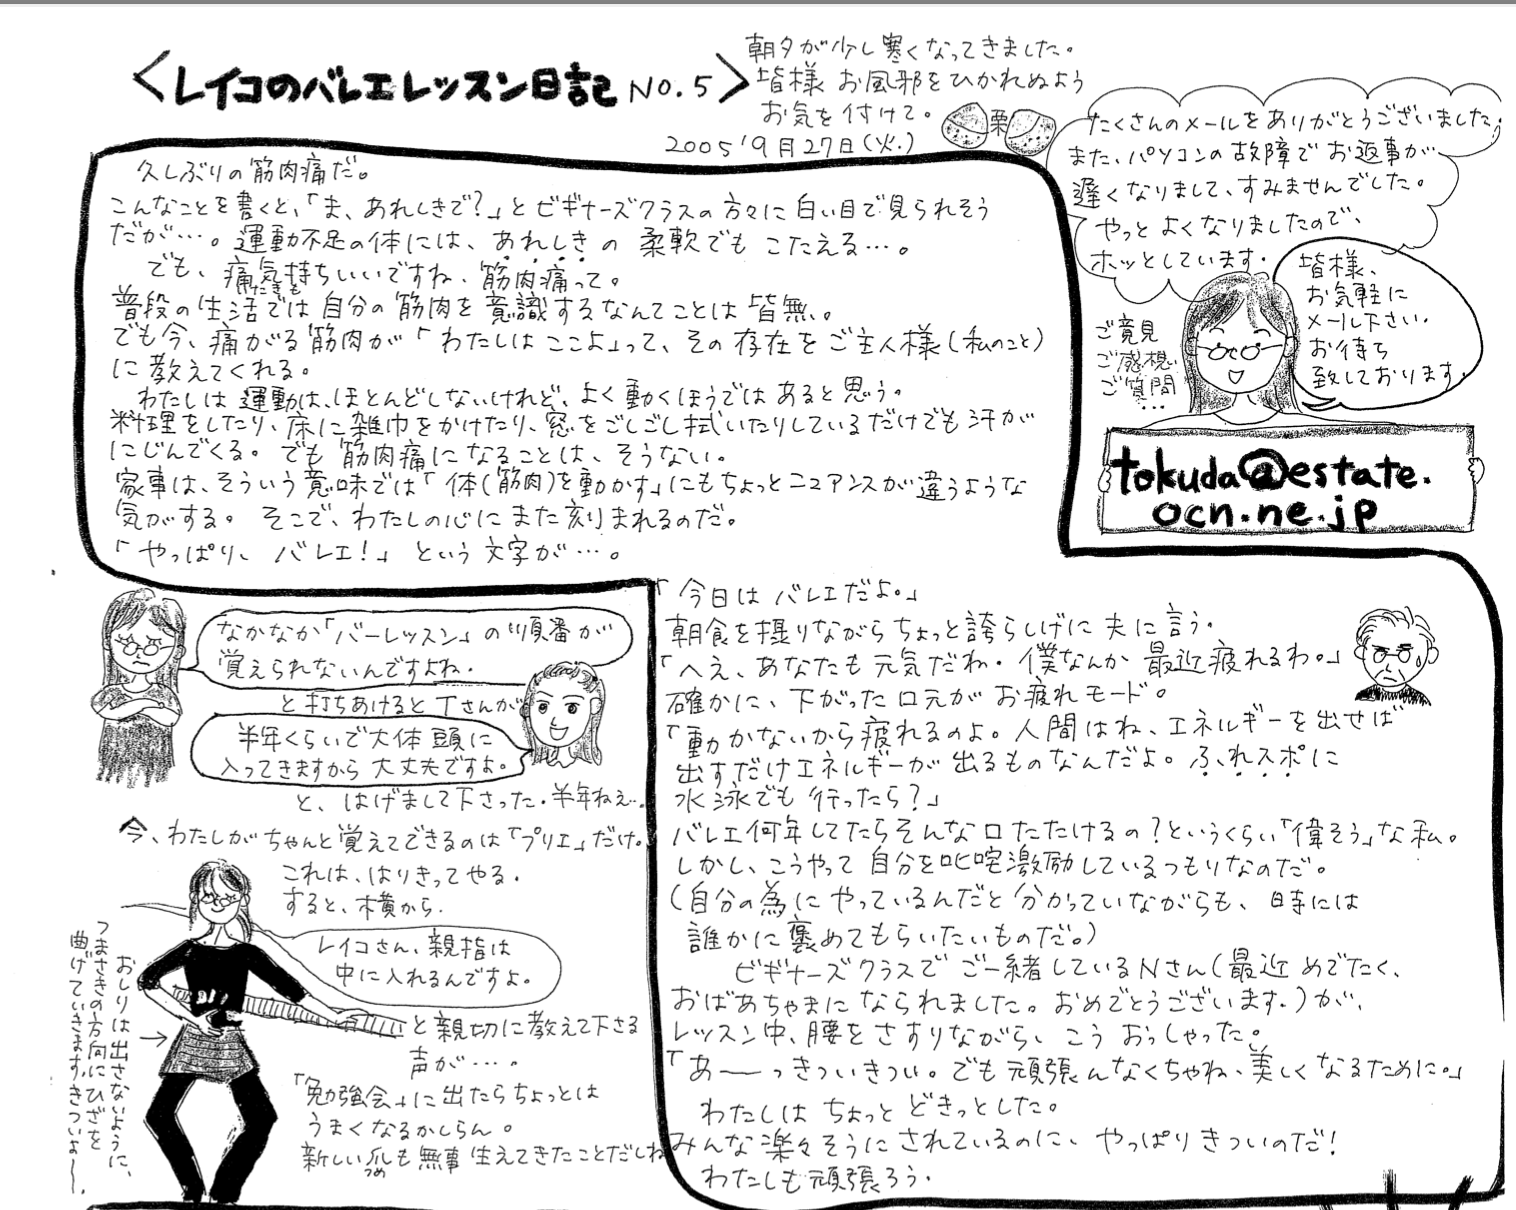 <レイコのバレエレッスン日記 NO.5>
朝夕が少し寒くなってきました。
皆様 お風邪をひかれぬよう
お気を付けて。
栗
2005'9月27日(火.)
たくさんのメールをありがとうございました。
また、パソコンの故障でお返事が
遅くなりまして、すみませんでした。
やっとよくなりましたので、
ホッとしています.
皆様、
お気軽に
メール下さい.
お待ち
致しております.
ご意見
ご感想
ご質問
...
tokuda@estate.
ocn.ne.jp
久しぶりの筋肉痛だ。
こんなことを書くと、「ま、あれしきで?」とビギナーズクラスの方々に白い目で見られそう
だが…。運動不足の体には、あれしきの 柔軟でも こたえる…。
でも、痛気持ちいいですね、筋肉痛って。
いたきも
普段の生活では自分の筋肉を意識するなんてことは皆無。
でも今、痛がる筋肉が「わたしはここよ」って、その存在をご主人様(私のこと)
に教えてくれる。
わたしは運動は、ほとんどしないけれど、よく動くほうではあると思う。
料理をしたり、床に雑巾をかけたり、窓をごしごし拭いたりしているだけでも汗が
にじんでくる。でも筋肉痛になることは、そうない。
家事は、そういう意味では「体(筋肉)を動かす」にもちょっとニュアンスが違うような
気がする。そこで、わたしの心にまた刻まれるのだ。
「やっぱり、バレエ!」という文字が…。
なかなか「バーレッスン」の順番が
覚えられないんですよね.
と打ちあけるとTさんが
半年くらいで大体頭に
入ってきますから大丈夫ですよ.
と、はげまして下さった.半年ねえ…
今、わたしがちゃんと覚えてできるのは「プリエ」だけ.
これは、はりきってやる.
すると、横から.
レイコさん、親指は
中に入れるんですよ.
と親切に教えて下さる
声が…。
「勉強会」に出たらちょっとは
うまくなるかしらん。
新しい爪も無事生えてきたことだしね
つめ
おしりは出さないように、
つまさきの方向にひざを
曲げていきます,きついよ〜.
「今日はバレエだよ.」
朝食を摂りながらちょっと誇らしげに夫に言う.
「へえ、あなたも元気だね.僕なんか最近疲れるわ.」
確かに、下がった口元がお疲れモード。
「動かないから疲れるのよ。人間はね、エネルギーを出せば
出すだけエネルギーが出るものなんだよ。ふれスポに
水泳でも行ったら?」
バレエ何年してたらそんな口たたけるの?というくらい「偉そう」な私.
しかし、こうやって自分を叱咤激励しているつもりなのだ。
(自分の為にやっているんだと分かっていながらも、時には
誰かに褒めてもらいたいものだ。)
ビギナーズクラスでご一緒しているNさん(最近めでたく、
おばあちゃまになられました。おめでとうございます.)が、
レッスン中、腰をさすりながら、こうおっしゃった。
「あーっきついきつい。でも頑張んなくちゃね、美しくなるために。」
わたしはちょっとどきっとした。
みんな楽々そうにされているのに、やっぱりきついのだ!
わたしも頑張ろう.